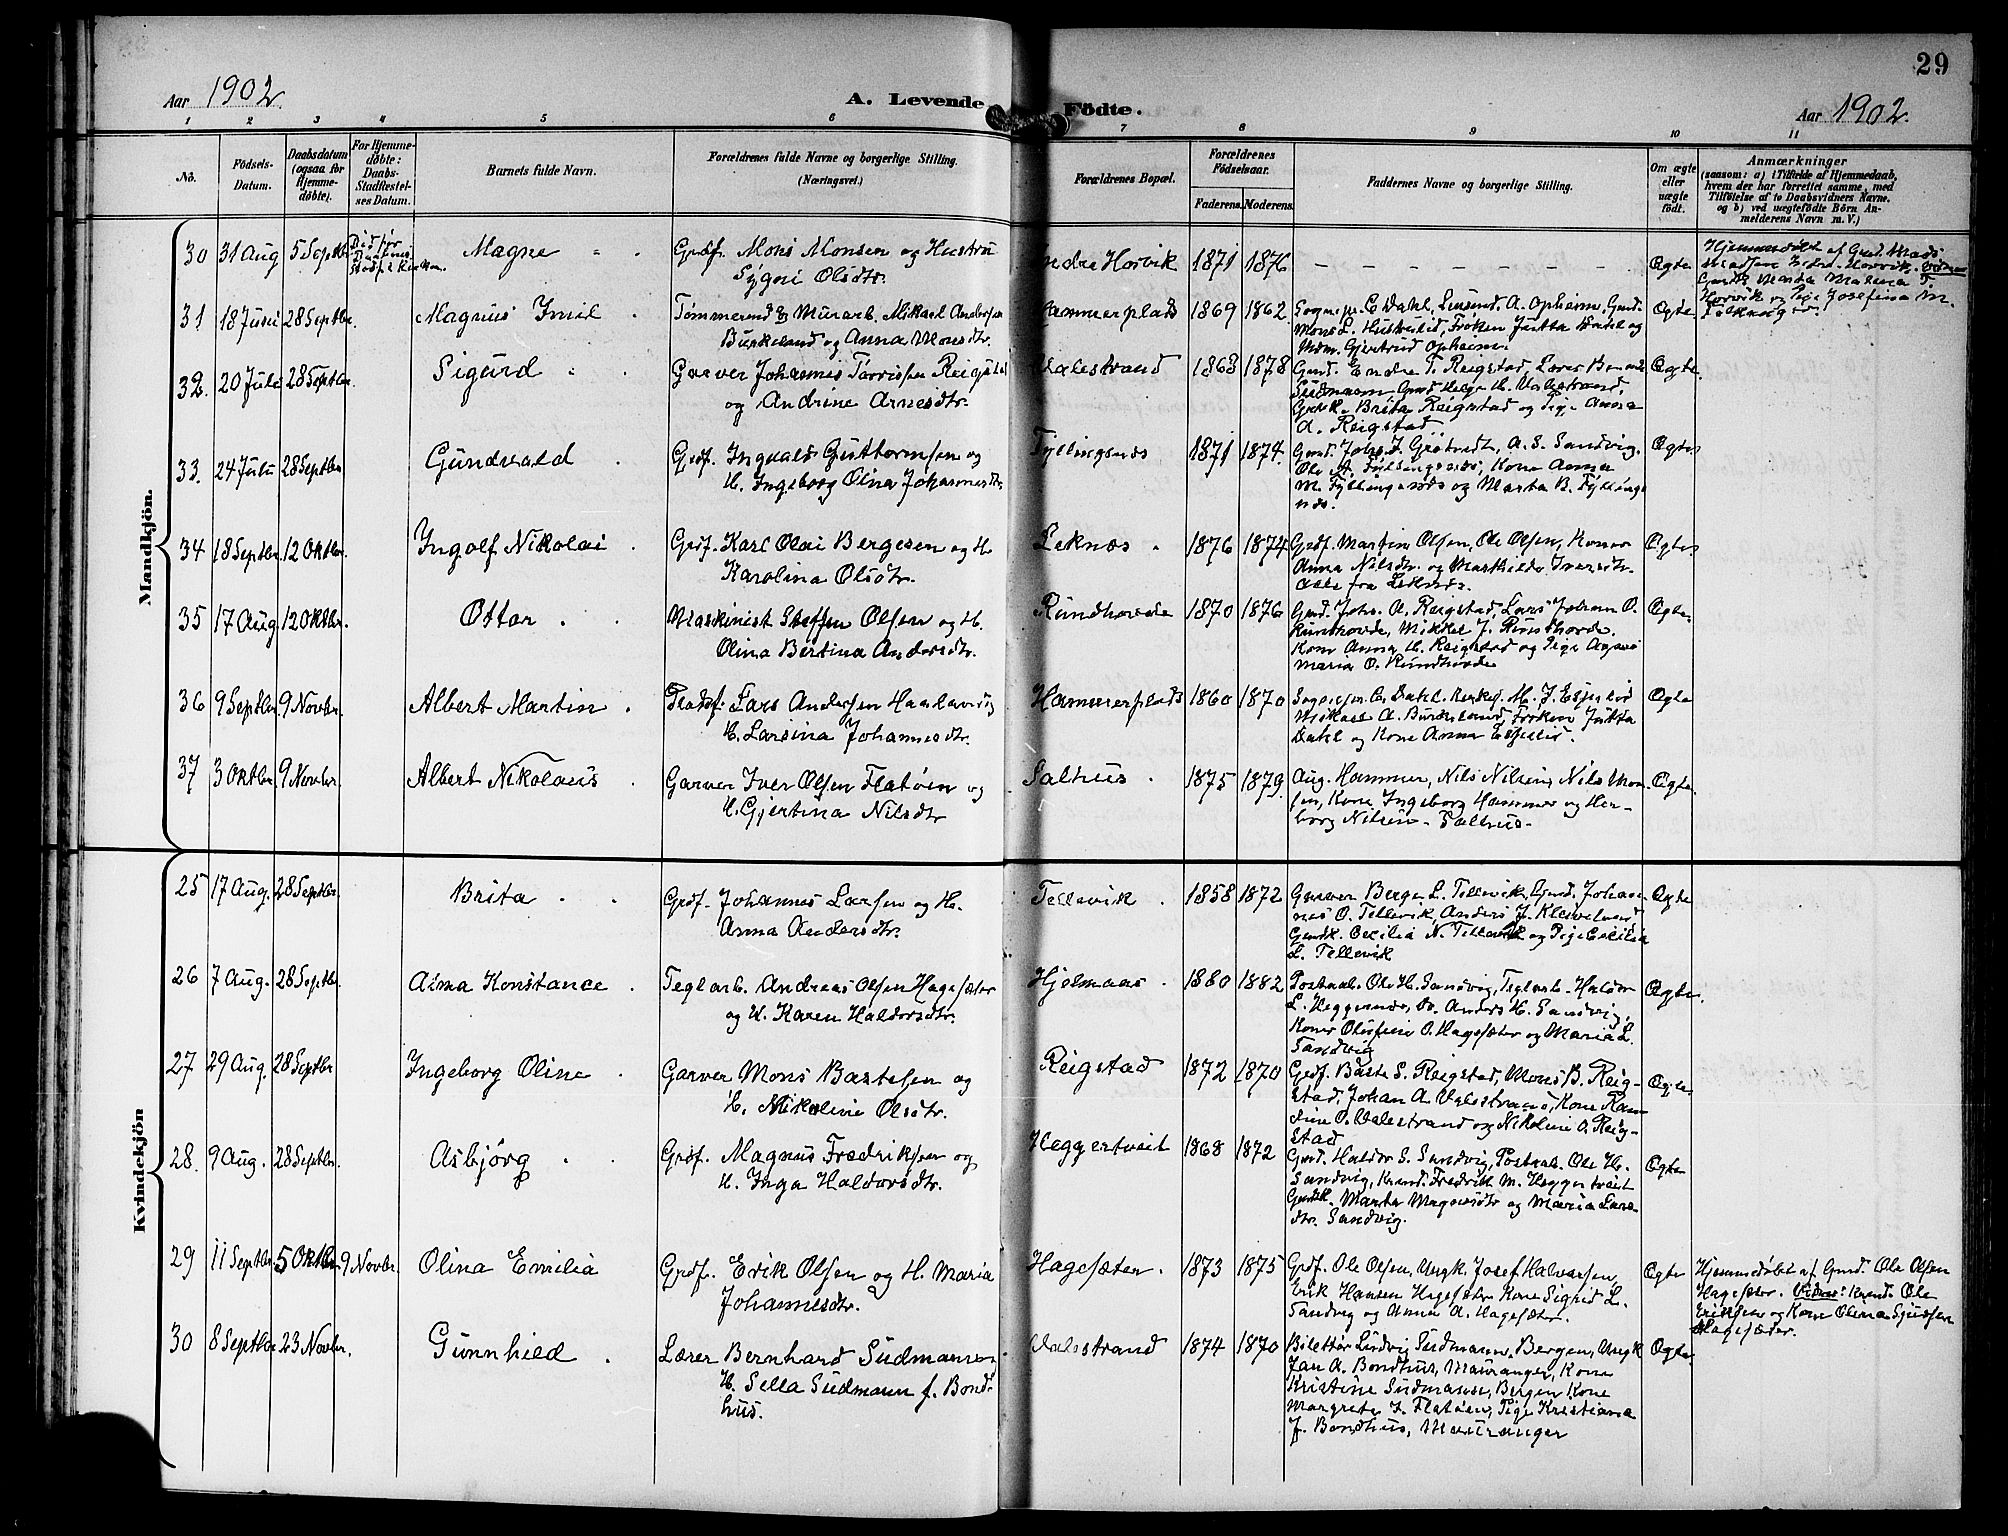 29
Aar 1902.
A. Levende Födte.
Aar 1902.
1 2 3 4 5 6 7 8 9 10 11
No.
Födsels-Datum.
Daabsdatum (ogsaa for Hjemmedöbte).
For Hjemmedöbte: Daabs-Stadfestelses Datum.
Barnets fulde Navn.
Forældrenes fulde Navne og borgerlige Stilling. (Næringsvei.)
Forældrenes Bopæl.
Forældrenes Födselsaar.
Faderens. Moderens.
Faddernes Navne og borgerlige Stilling.
Om ægte eller uægte födt.
Anmærkninger
(saasom: a) i Tilfælde af Hjemmedaab,
hvem der har forrettet samme, med
Tilföielse af to Daabsvidners Navne,
og b) ved uægtefödte Börn An-
melderens Navn m. V.)
Mandkjön.
30 31 Aug 5 Septbr Magne Grdf. Mons Monsen og Hustru
Sygni Olsdtr. Indre Horvik 1871 1876 Ægte Hjemmedöbt af Gmd. Mads
31 18 Juni 28 Septbr. Magnus Emil Tømmermd & Murarb. Mikael Andersen
Burkeland og Anna Monsdtr. Hammerplads 1869 1862 Sognepr. C. Dahl, Lensmd. A. Opheim, Gmd.
Mons L. Husvelid, Frøken Jutta Dahl og
Mdm. Gjertrud Opheim. Ægte.
32. 20 Juli 28 Septbr. Sigurd Garver Johannes Torrissen Reigstad
og Andrine Arnesdtr. Valestrand 1868 1878 Gmd. Endre T. Reigstad, Lærer Bernh.
Sudmann, Gmd. Helge H. Valestrand,
Gmdk. Brita Reigstad og Pige Anna
A. Reigstad Ægte.
33. 24 Juli 28 Septbr Gundvald Grdf. Ingvald Guttormsen og
H. Ingeborg Olina Johannesdtr. Fyllingsnes 1871 1874. Gmd. Johs. J. Gjøtvedt, A. S. Sandvig,
Ole A. Fyllingsnes, Kone Anna
M. Fyllingsnes og Marta B. Fyllings
nes. Ægte
34 18 Septbr. 12 Oktbr. Ingolf Nikolai Grdf. Karl Olai Bergesen og H.
Karolina Olsdtr. Leknes 1876 1874 Grdf. Martin Olsen, Ole Olsen, Koner
Anna Nilsdtr. og Marthilde Iversdtr.
alle fra Leknes. Ægte
35 17 Aug 12 Oktbr. Ottar Maskinist Steffen Olsen og H.
Olina Bertina Andersdtr. Rundhovde 1870 1876 Gmd. Johs. A. Reigstad, Lars Johan O.
Rundhovde, Mikkel J. Rundhovde.
Kone Anna H. Reigstad og Pige Agave
Maria O. Rundhovde Ægte
36 9 Septbr 9 Novbr. Albert Martin Pladsf. Lars Andersen Haaland
H. Larsina Johannesdtr. Hammerplads 1860 1870 Sognepr. C. Dahl, Kirkes. M. J. Espelid
Mikael A. Burkeland, Frøken Jutta
Dahl og Kone Anna Espelid. Ægte
37 3 Oktbr. 9 Novbr. Albert Nikolaus Garver Iver Olsen Flatøen og
H. Gjertina Nilsdtr Salhus 1875 1879. Aug. Hammer, Nils Nilsen, Nils Mon-
sen, Kone Ingeborg Hammer og Her-
borg Nilsen - Salhus - Ægte.
Kvindekjön
25 17 Aug. 28 Septbr. Brita Grdf. Johannes Larsen og H.
Anna Andersdtr. Tellevik 1858 1872 Garver Berge L. Tellevik, Gmd. Johan-
nes O. Tellevik, Anders J. Kleiveland
Gmdk. Cecilia N. Tellevik og Pige Cecilia
L. Tellevik Ægte
26 7 Aug. 28 Septbr. Alma Konstance Teglarb. Andreas Olsen Hagesæter
og H. Karen Haldorsdtr. Hjelmaas 1880 1882 Postaab. Ole H. Sandvig, Teglarb. Haldor
L. Heggernes, Do. Anders H. Sandvig,
Koner Olufine O. Hagesæter og Maria L.
Sandvig Ægte.
27 29 Aug. 28 Septbr Ingeborg Oline Garver Mons Bastesen og
H. Nikoline Olsdtr. Reigstad 1872 1870 Grdf. Baste S. Reigstad, Mons B. Reig-
stad, Johan A. Valestrand, Kone
O. Valestrand og Nikoline O. Reig-
stad Ægte
28. 9 Aug. 28 Septbr. Asbjørg Grdf. Magnus Fredriksen og
H. Inga Haldorsdtr. Heggertveit 1868 1872 Gmd. Haldor S. Sandvig, Postaab. Ole H.
Sandvig, Fredrik M. Heggertveit
Gmdk. Marta Magnesdtr og Maria Lars-
dtr. Sandvig. Ægte
29 11 Septbr. 5 Oktbr. 9 Novbr. Olina Emilia Grdf. Erik Olsen og H. Maria
Johannesdtr. Hagesæter. 1873 1875 Grdf. Ole Olsen, Ungk. Josef Halvorsen,
Erik Hansen Hagesæter, Kone Sigrid L.
Sandvig og Anna A. Hagesæter. Ægte Hjemmedöbt af Gmd. Ole Olsen
Hagesæter. Vidner: Ole
Eriksen og Kone Olina
Hagesæter.
30 8 Septbr 23 Novbr. Gunnhild Lærer Bernhard Sudmann og
H. Sella Sudmann f. Bond-
hus. Valestrand 1874 1870 Billettør Ludvig Sudmann, Bergen, Ungk
Jan A. Bondhus, Mauranger, Kone
Kristine Sudmann, Bergen, Kone
Margrete I. Flatøen, Pige Kristiane
J. Bondhus, Mauranger Ægte